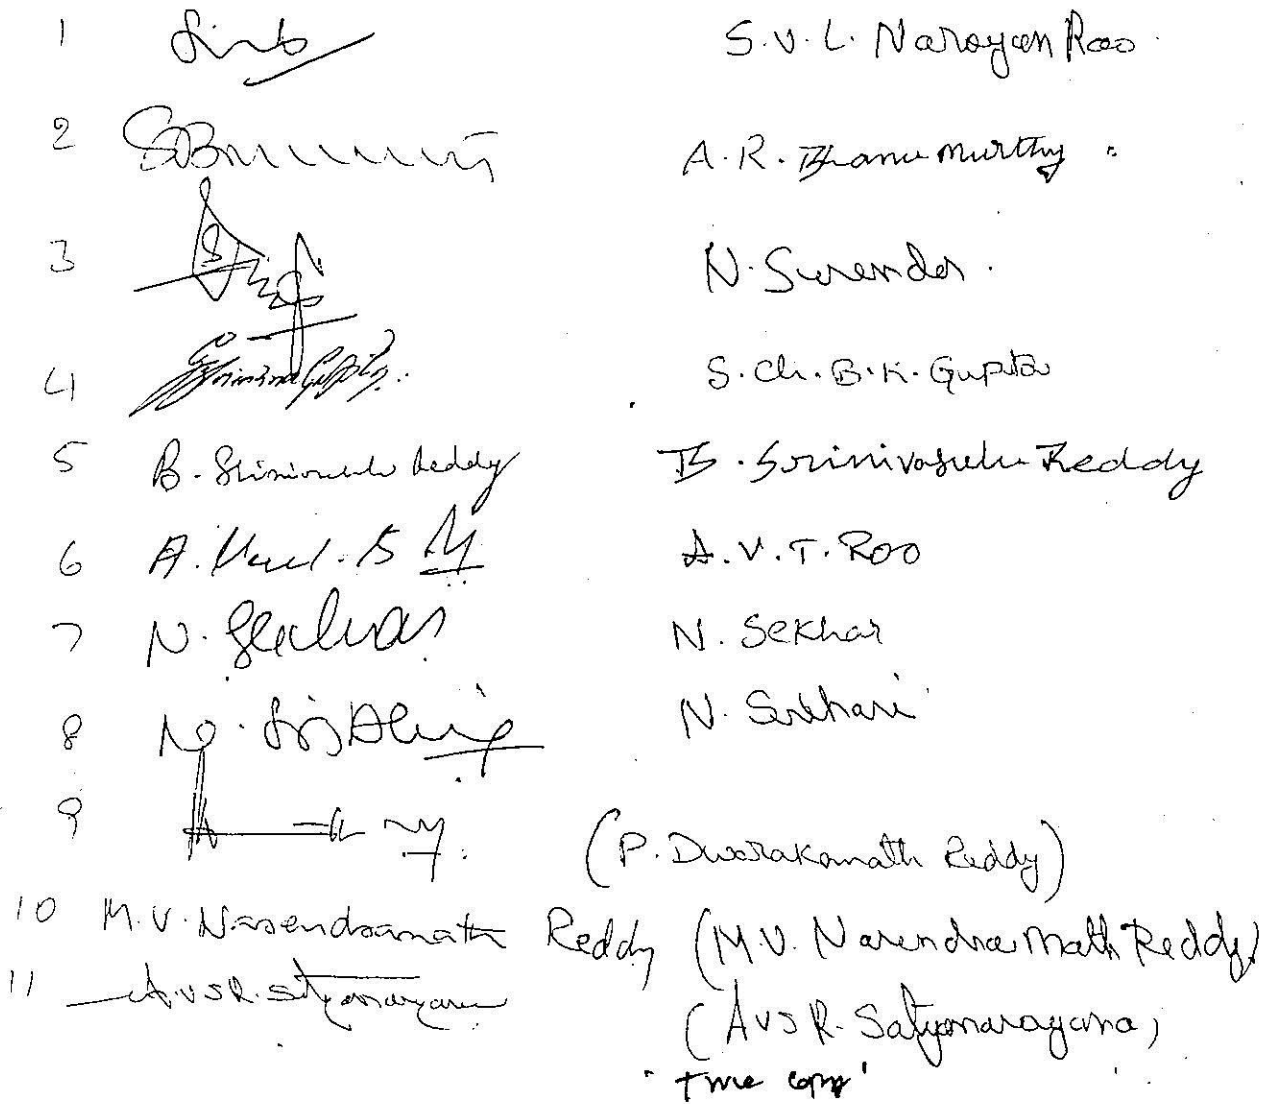 1 S.V.L. Narayan Rao
2 A.R. Bhanu Murthy
3 N. Surender
4 S.Ch.B.K. Gupta
5 B. Srinivasulu Reddy B. Srinivasulu Reddy
6 A.V.T. Rao
7 N. Sekhar N. Sekhar
8 N. Srihari
9 (P. Dwarakanath Reddy)
10 M.V. Narendranath Reddy (M.V. Narendra Nath Reddy)
11 A.V.S.R. Satyanarayana
(AVSR. Satyanarayana)
'True copy'